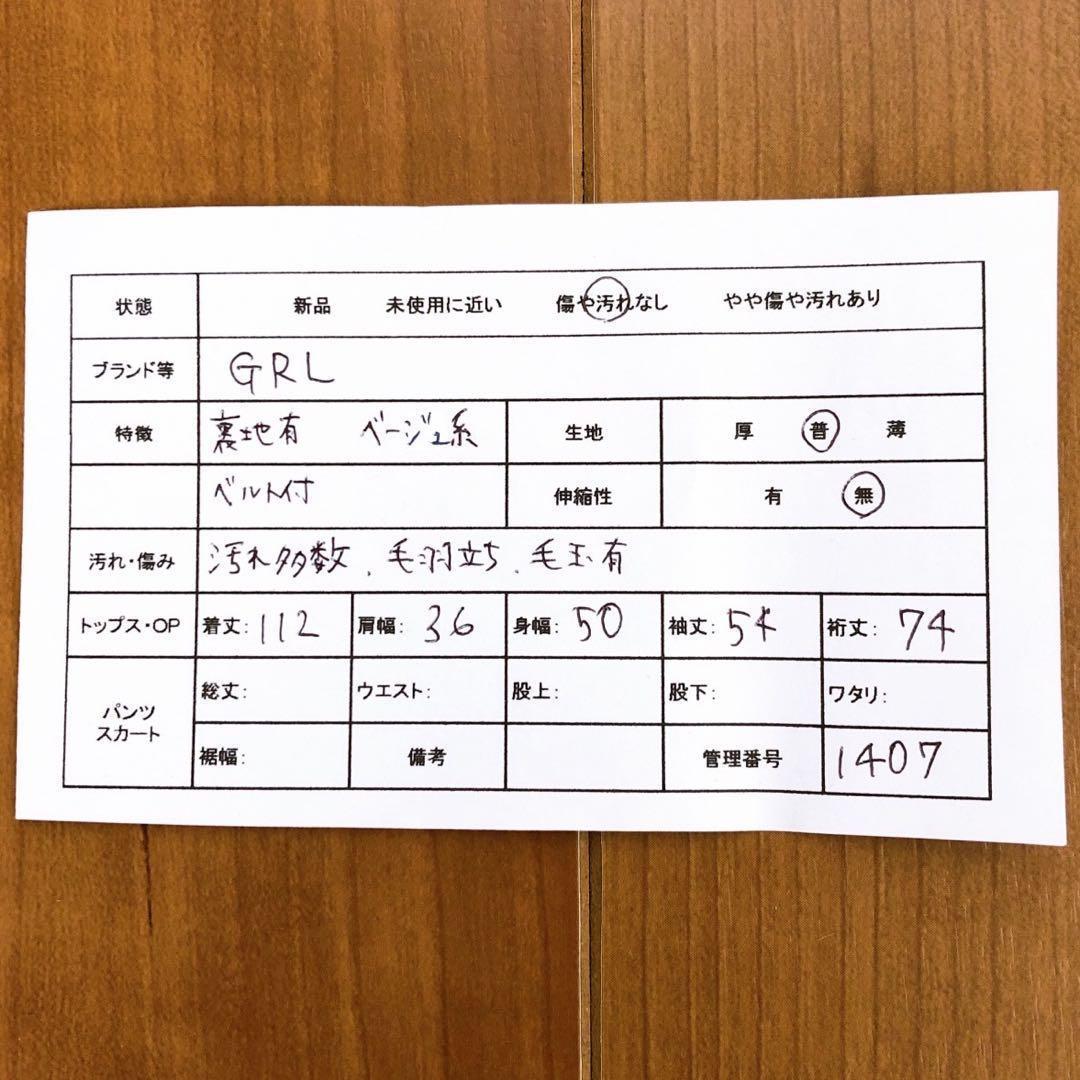 状態 新品 未使用に近い 傷や汚れなし やや傷や汚れあり
ブランド等 GRL
特徴 裏地有 ベージュ系 生地 厚 普 薄
ベルト付 伸縮性 有 無
汚れ・傷み 汚れ多数、毛羽立ち、毛玉有
トップス・OP 着丈:112 肩幅:36 身幅:50 袖丈:54 裄丈:74
パンツ
スカート
総丈: ウエスト: 股上: 股下: ワタリ:
裾幅: 備考 管理番号 1407